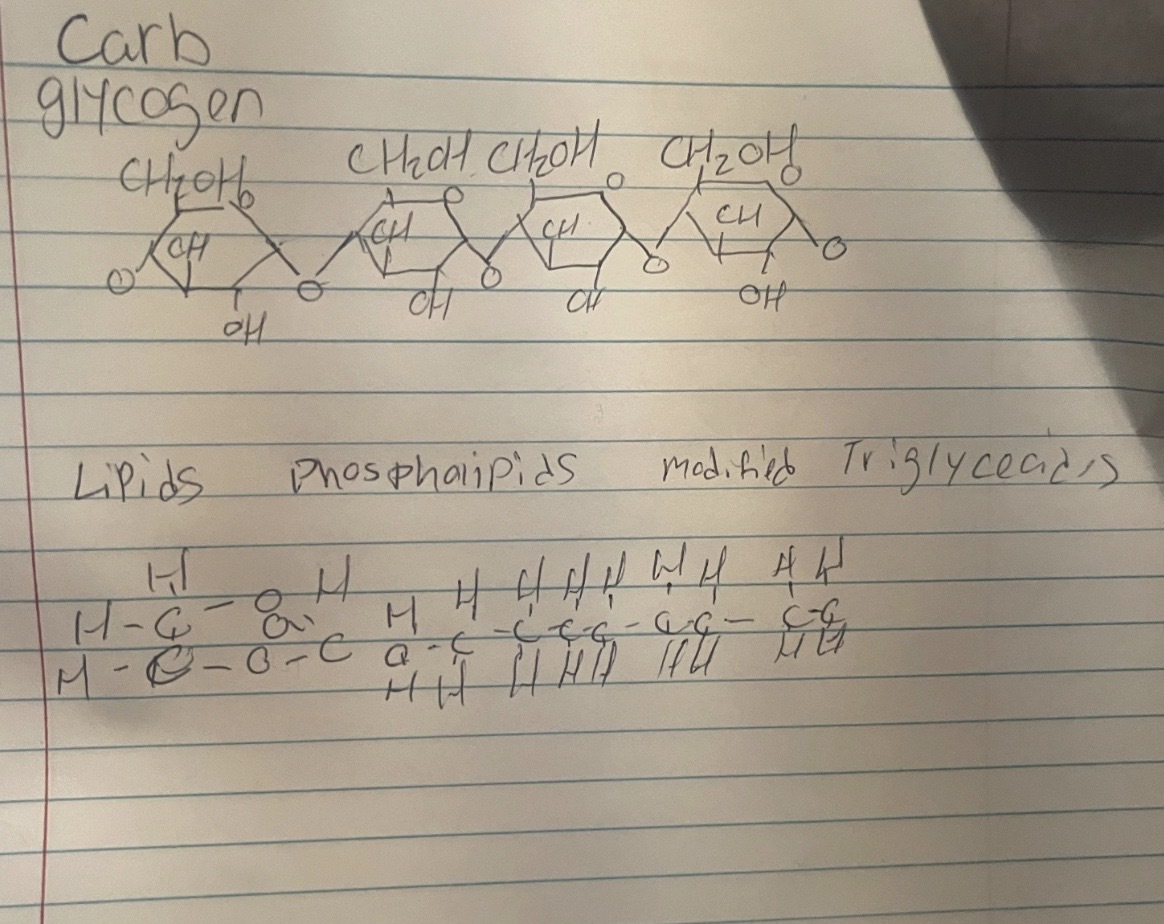 Carb
glycogen
CH2OH CH2OH CH2OH CH2OH
O O O O
CH CH CH CH
O O O O O
OH OH OH OH
Lipids Phospholipids modified Triglycecids
H H H H H H H H H H
H-C-O O H
H-C-O-C C-C-C-C-C-C-C-C
H H H H H H H H H